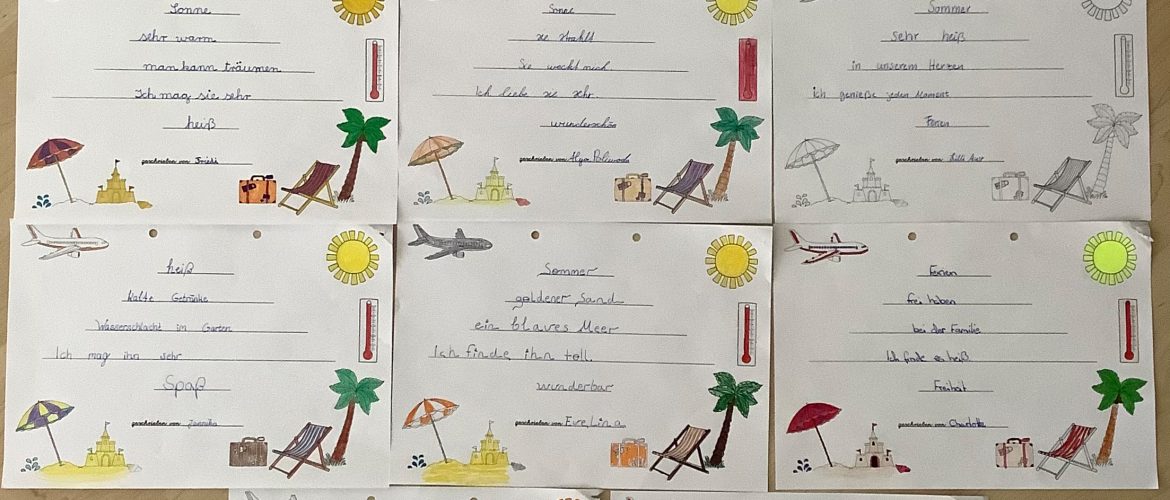 Sonne
sehr warm
man kann träumen
Ich mag sie sehr
heiß
geschrieben von
Sonne
sie strahlt
Sie weckt mich.
Ich liebe sie sehr.
wunderschön
geschrieben von
Sommer
sehr heiß
in unserem Herzen
ich genieße jeden Moment
Ferien
geschrieben von
heiß
kalte Getränke
Wasserschlacht im Garten
Ich mag ihn sehr
Spaß
geschrieben von
Sommer
goldener Sand
ein blaues Meer
Ich finde ihn toll.
wunderbar
geschrieben von EveLina
Ferien
frei haben
bei der Familie
Ich finde es heiß
Freiheit
geschrieben von Charlotte